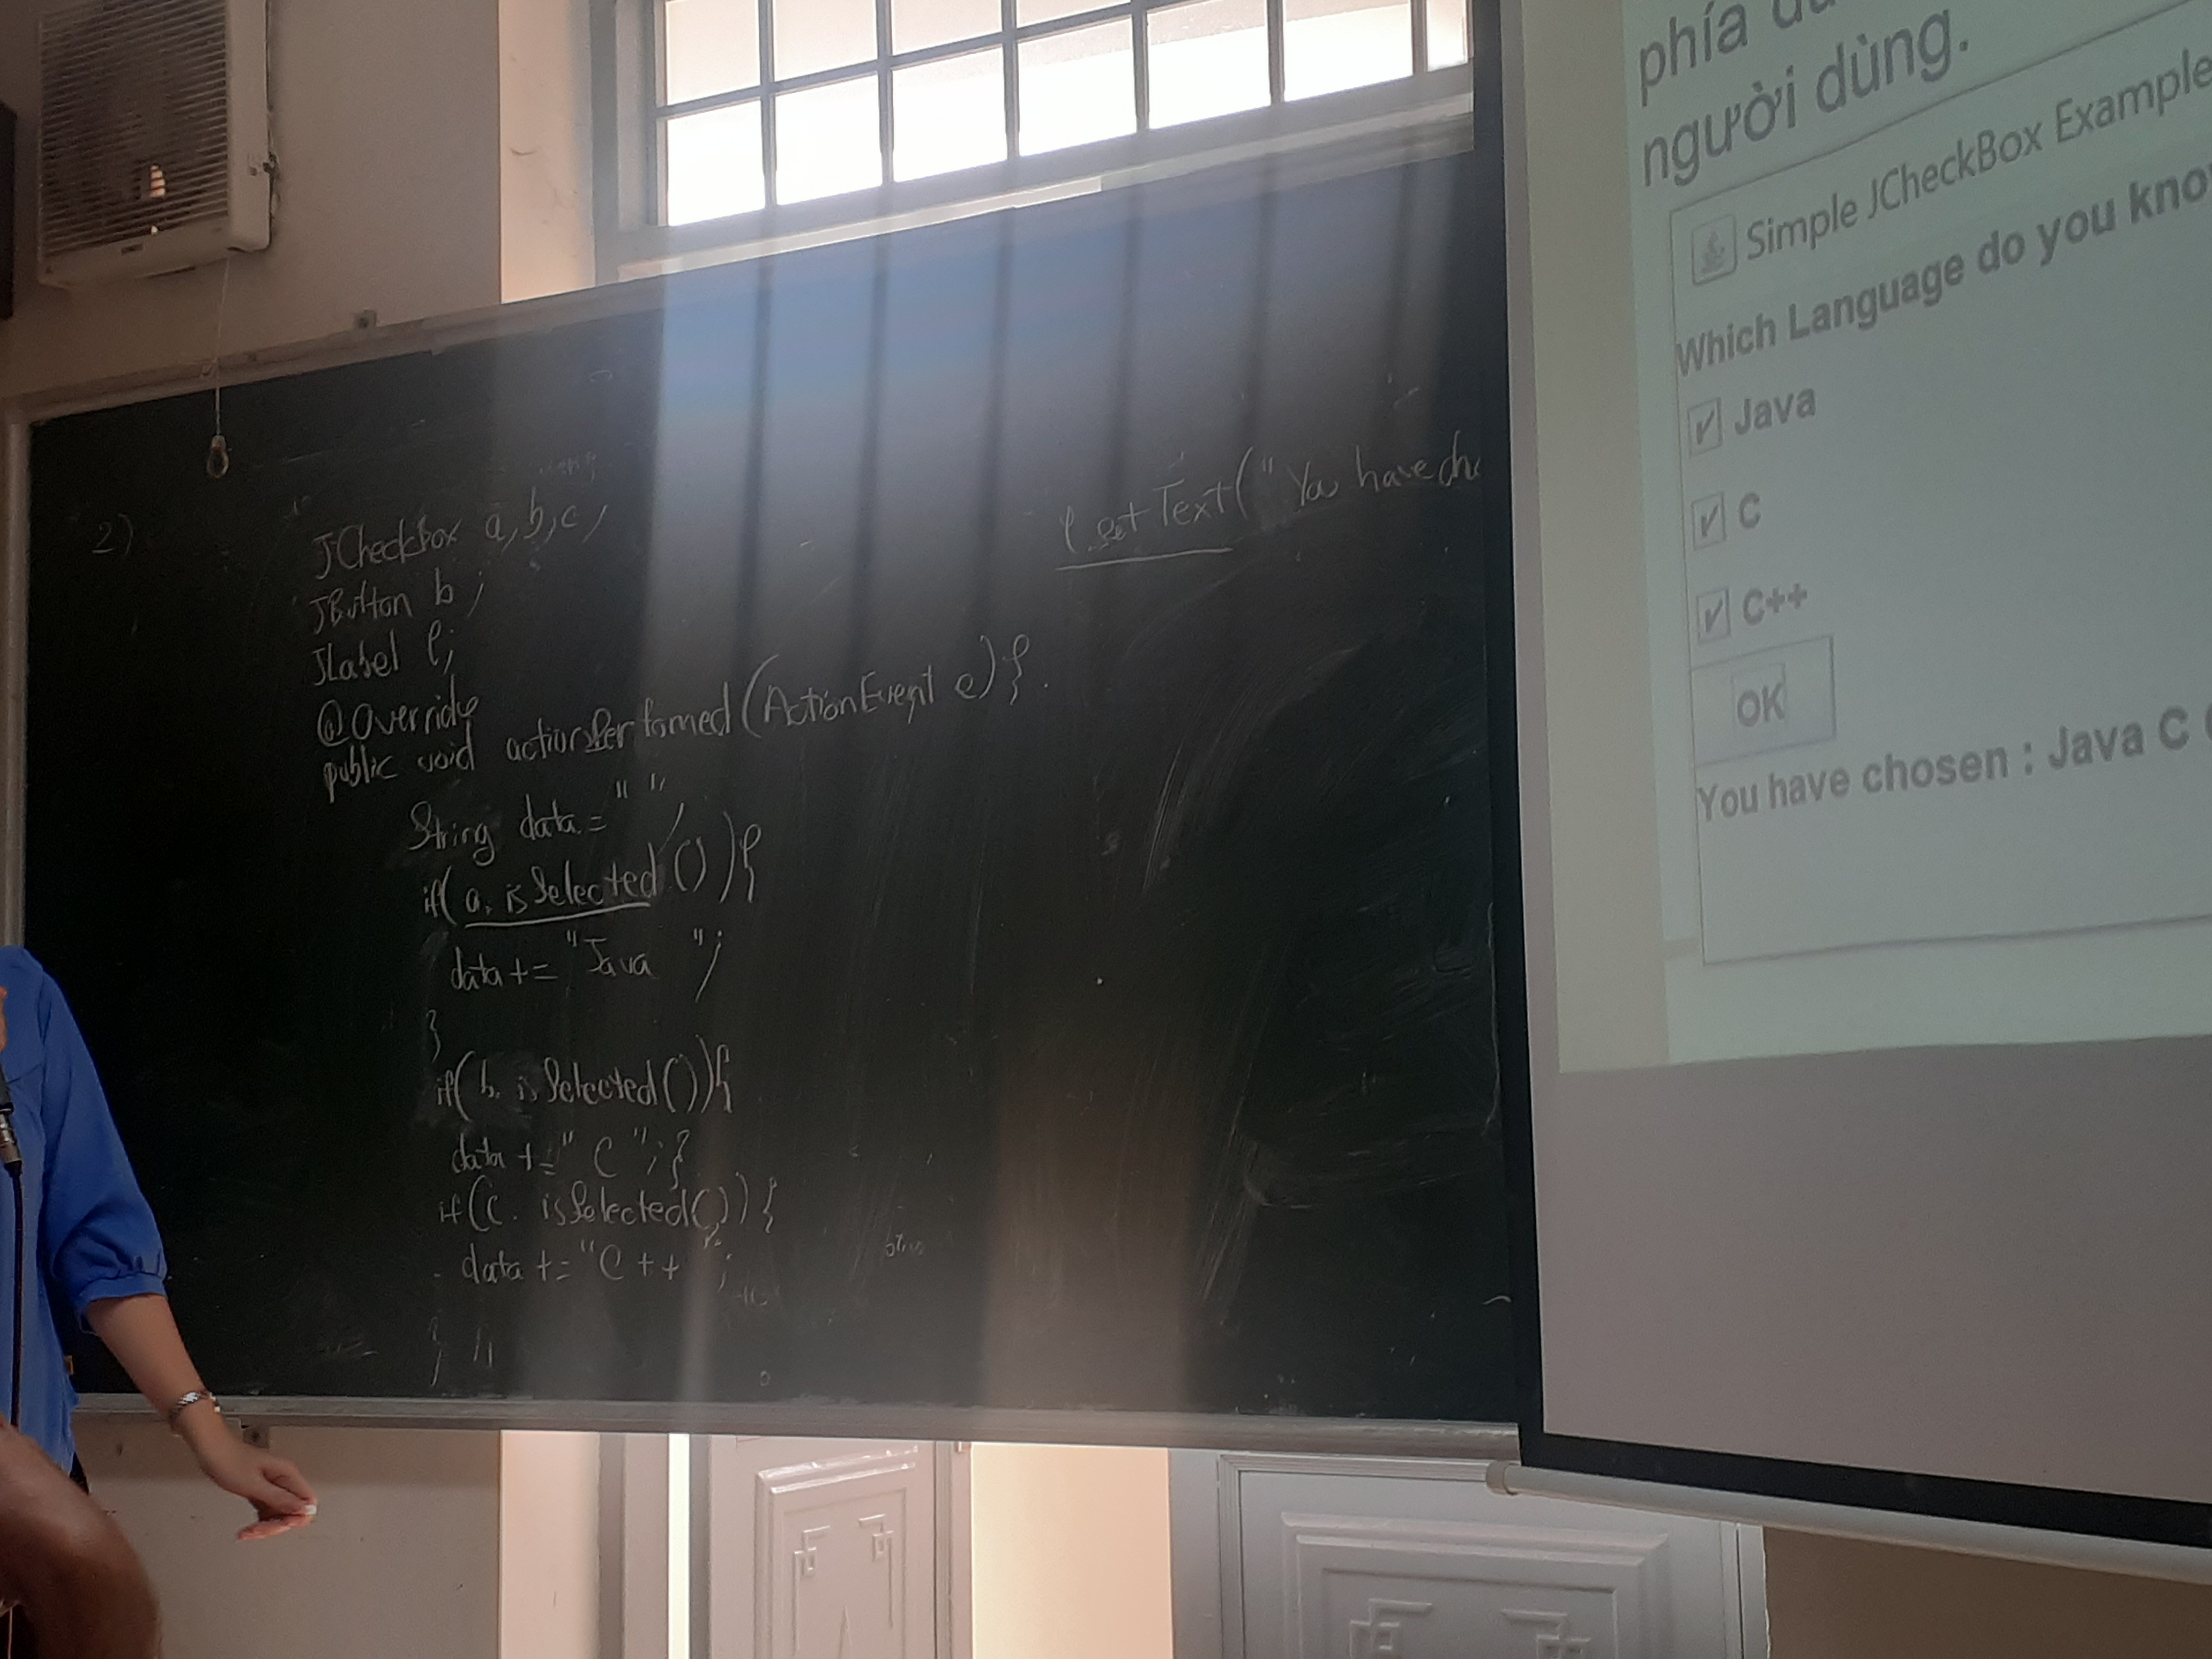 2)
JCheckBox a, b, c,
JButton b ;
JLabel l;
@Override
public void actionPerfomed (ActionEvent e) {
String data = " ",
if( a. isSelected () ) {
data += "Java ";
}
if( b. isSelected ()) {
data += " C "; }
if (c. isSelected()) {
data += "C ++ " ;
}
l.setText(" You have
phía
người dùng.
Simple JCheckBox Example
Which Language do you
Java
C
C++
OK
You have chosen : Java C